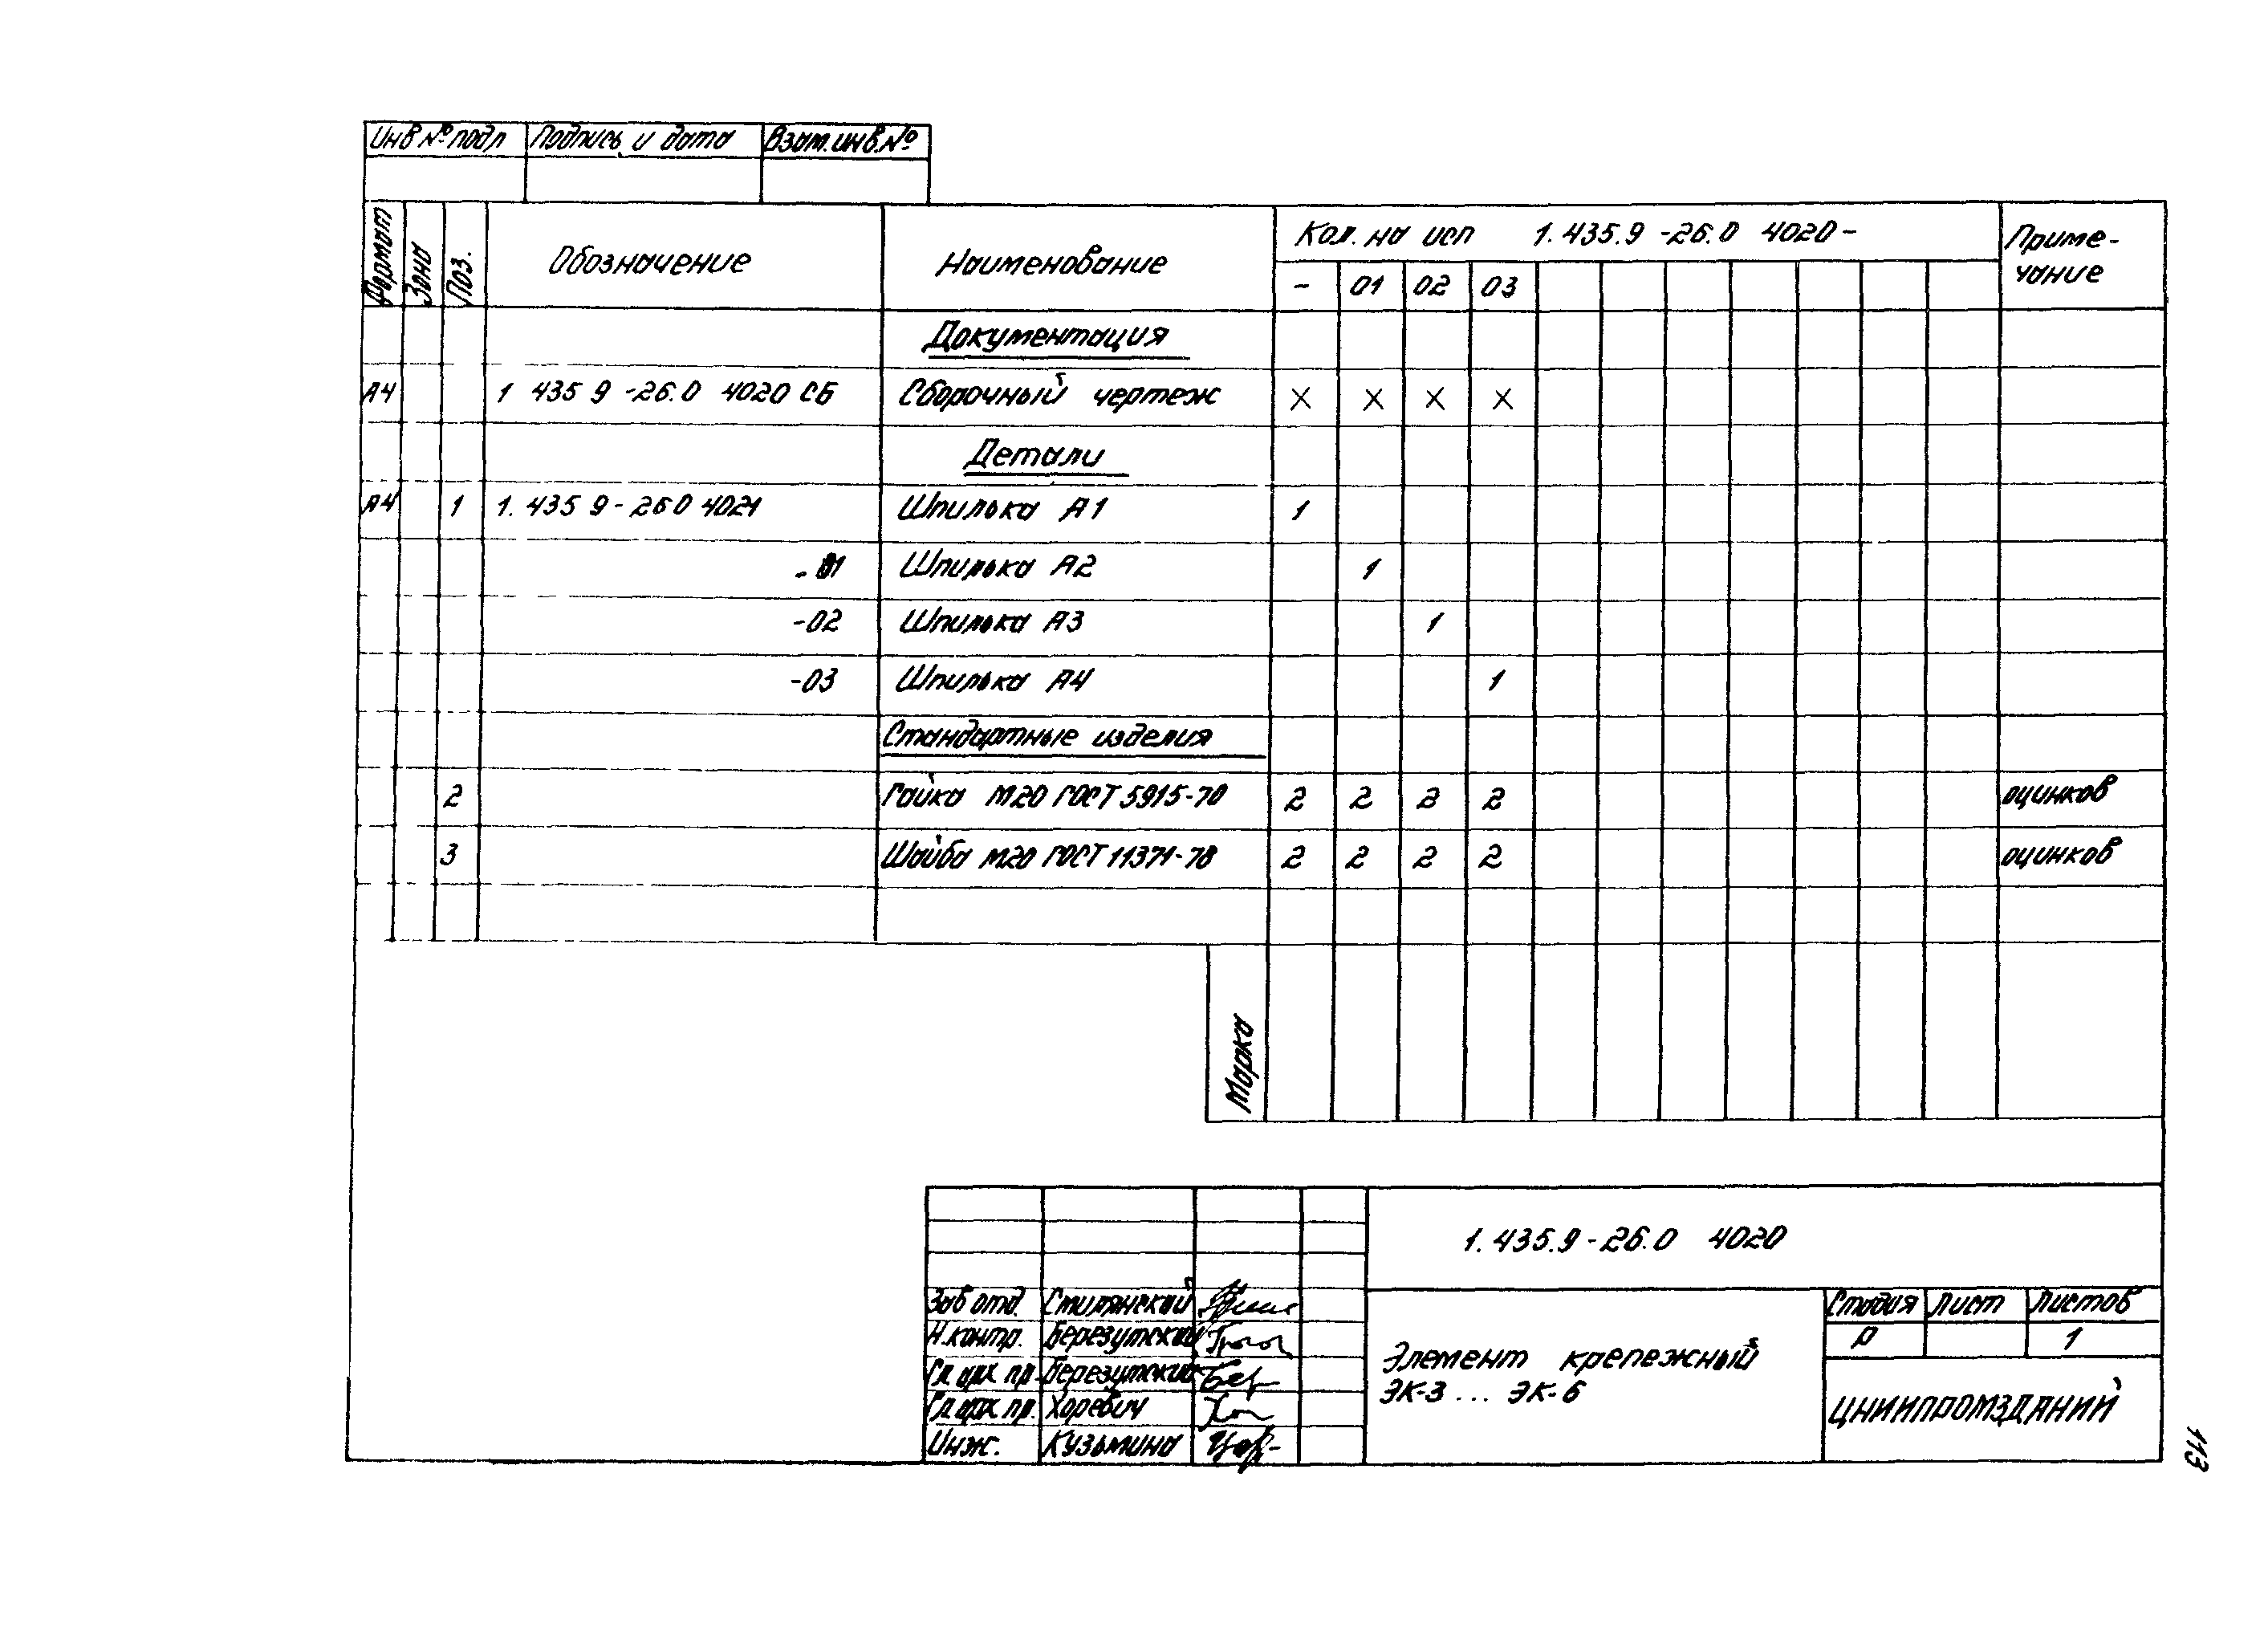 Инв № подл Подпись и дата Взам. инв. №
Формат Зона Поз. Обозначение Наименование Кол. на исп 1.435.9 -26.0 4020- Приме-
чание
- 01 02 03
Документация
А4 1 435 9 -26.0 4020 СБ Сборочный чертеж X X X X
Детали
А4 1 1. 435 9 - 26 0 4021 Шпилька А1 1
- 01 Шпилька А2 1
-02 Шпилька А3 1
-03 Шпилька А4 1
Стандартные изделия
2 Гайка М20 ГОСТ 5915-70 2 2 2 2 оцинков
3 Шайба М20 ГОСТ 11371-78 2 2 2 2 оцинков
Марка
1.435.9-26.0 4020
Зав отд. Стилянский
Н.контр. Березутский
Гл арх пр. Березутский
Гл арх пр. Хоревич
Инж. Кузьмина
Элемент крепежный
ЭК-3 ... ЭК-6
Стадия Лист Листов
Р 1
ЦНИИПРОМЗДАНИЙ
113